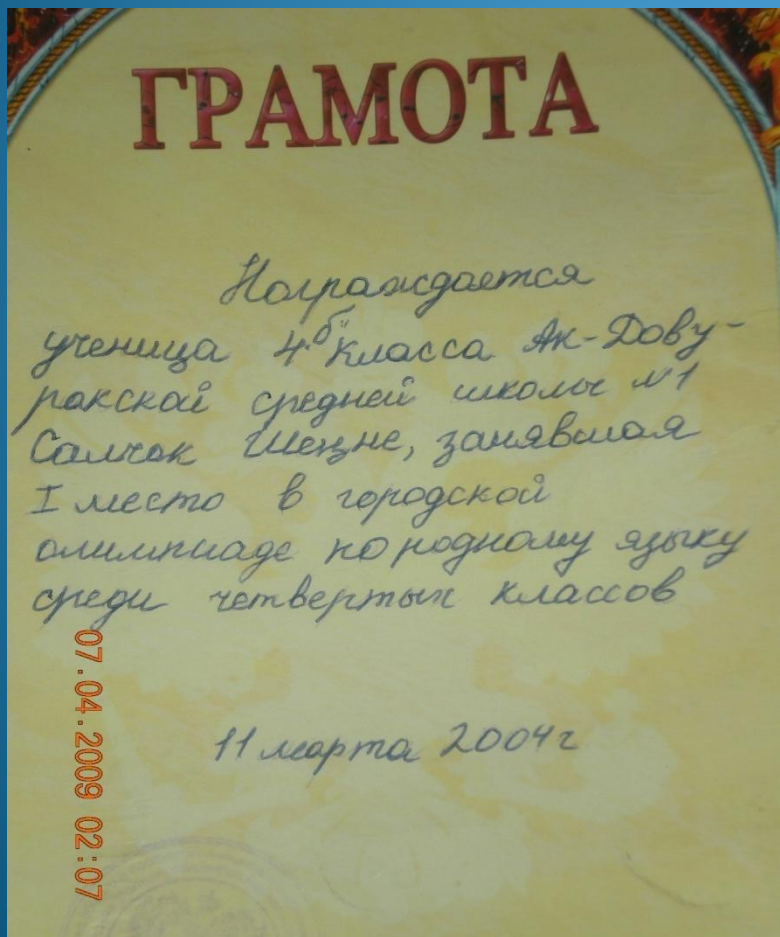 ГРАМОТА
Награждается
ученица 4"б" класса Ак-Дову-
ракской средней школы №1
Салчак Шенне, занявшая
I место в городской
олимпиаде по родному языку
среди четвертых классов
11 марта 2004г
07.04.2009 02:07